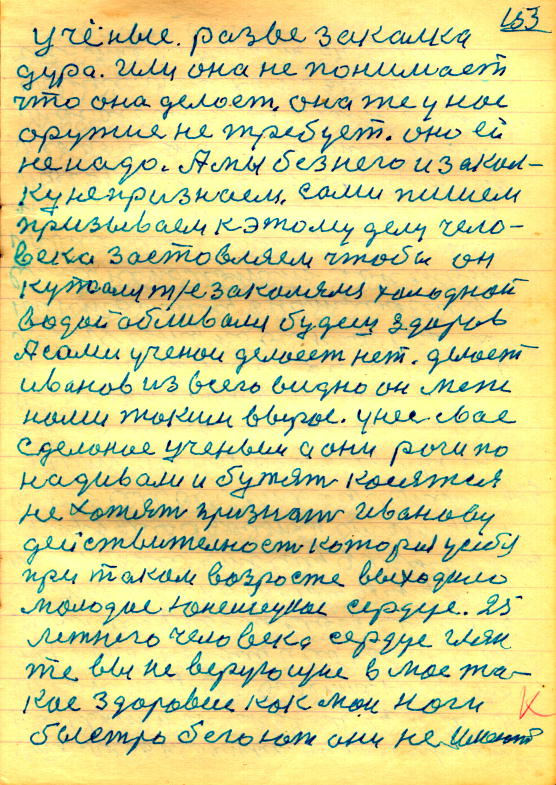 163
учёные. разве закалка
дура. Или она не понимает
что она делоет. она же у нос
оружие не требует. оно ей
ненадо. А мы безнего изакол-
ку непризнаем. сами пишем
призываем к этому делу чело-
века заставляем чтобы он
холодной
водой обливали будеш здоров
Асами ученои делоеет нет. делоет
иванов из всего видно он меж
нами таким вырос. унес свое
сделоное ученым а они роги по
надивали и бутят косятся
не хотят признат Иванову
действителност которая усибя
при таком возросте выходило
молодое юнешецкое сердце. 25
летнего человека сердце глян
те вы не верующие в мое та-
кое здоровие как мои ноги
быстро бегоют они не